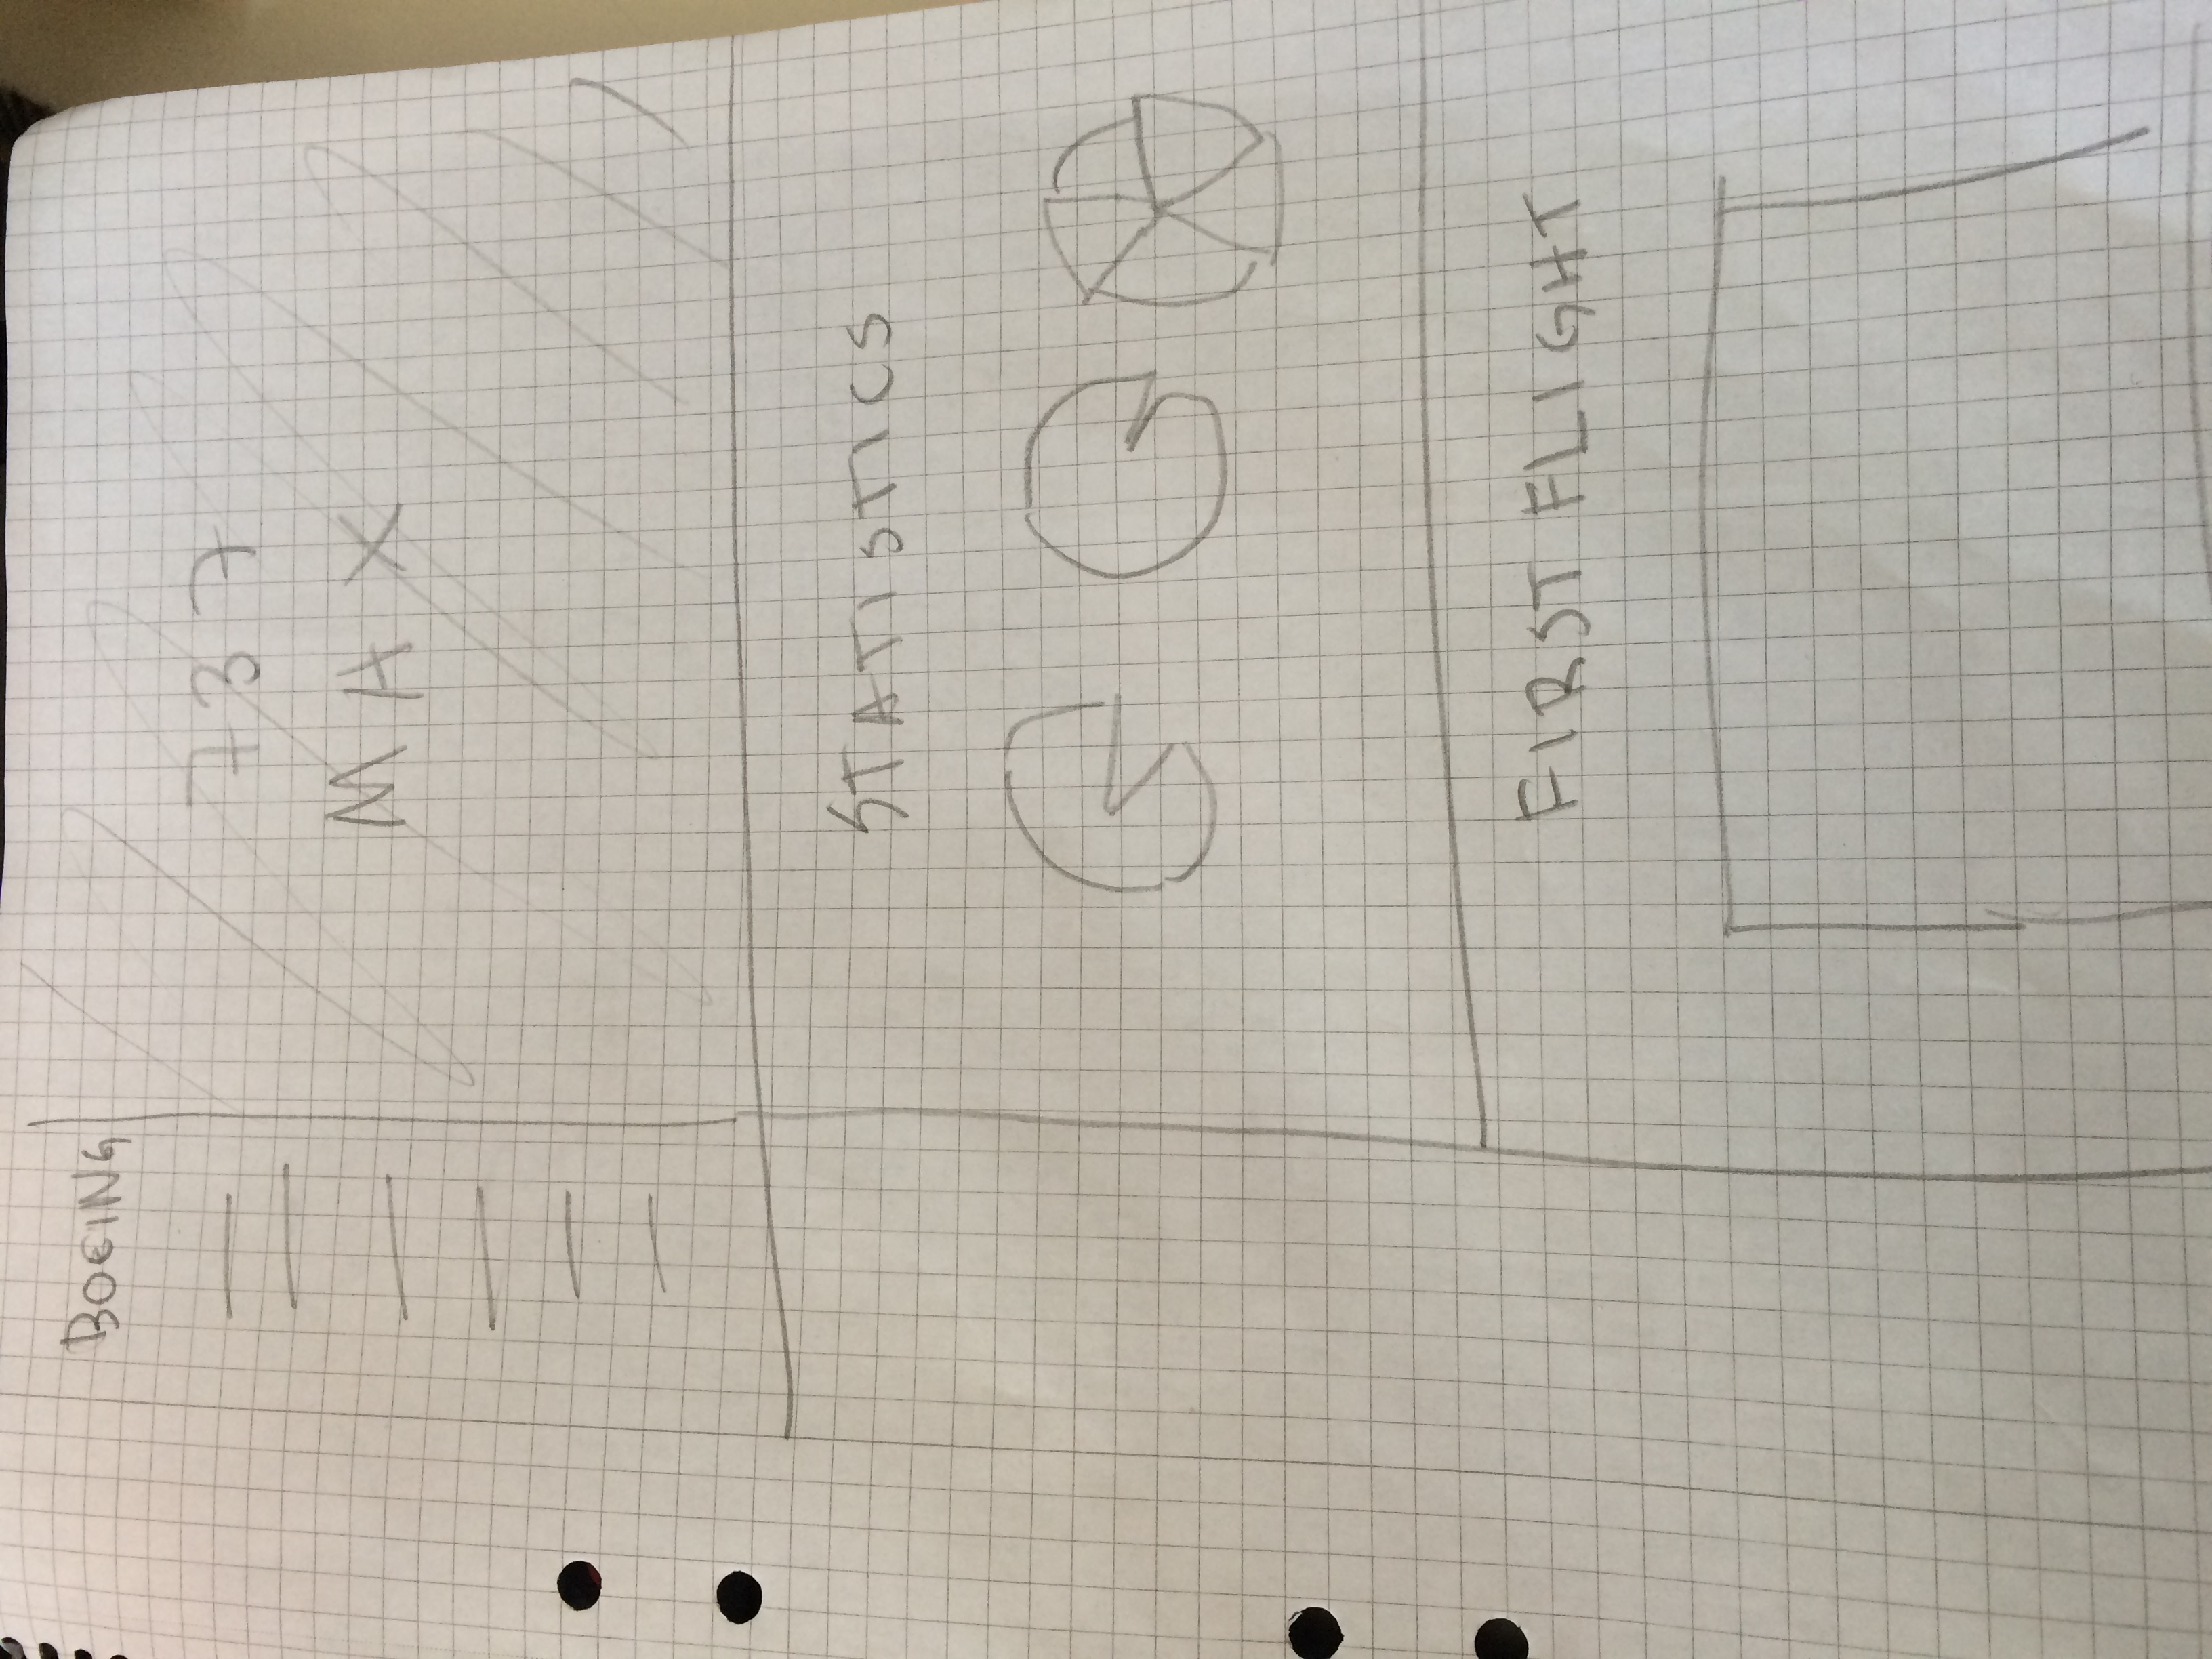 BOEING
737
MAX
STATISTICS
FIRST FLIGHT